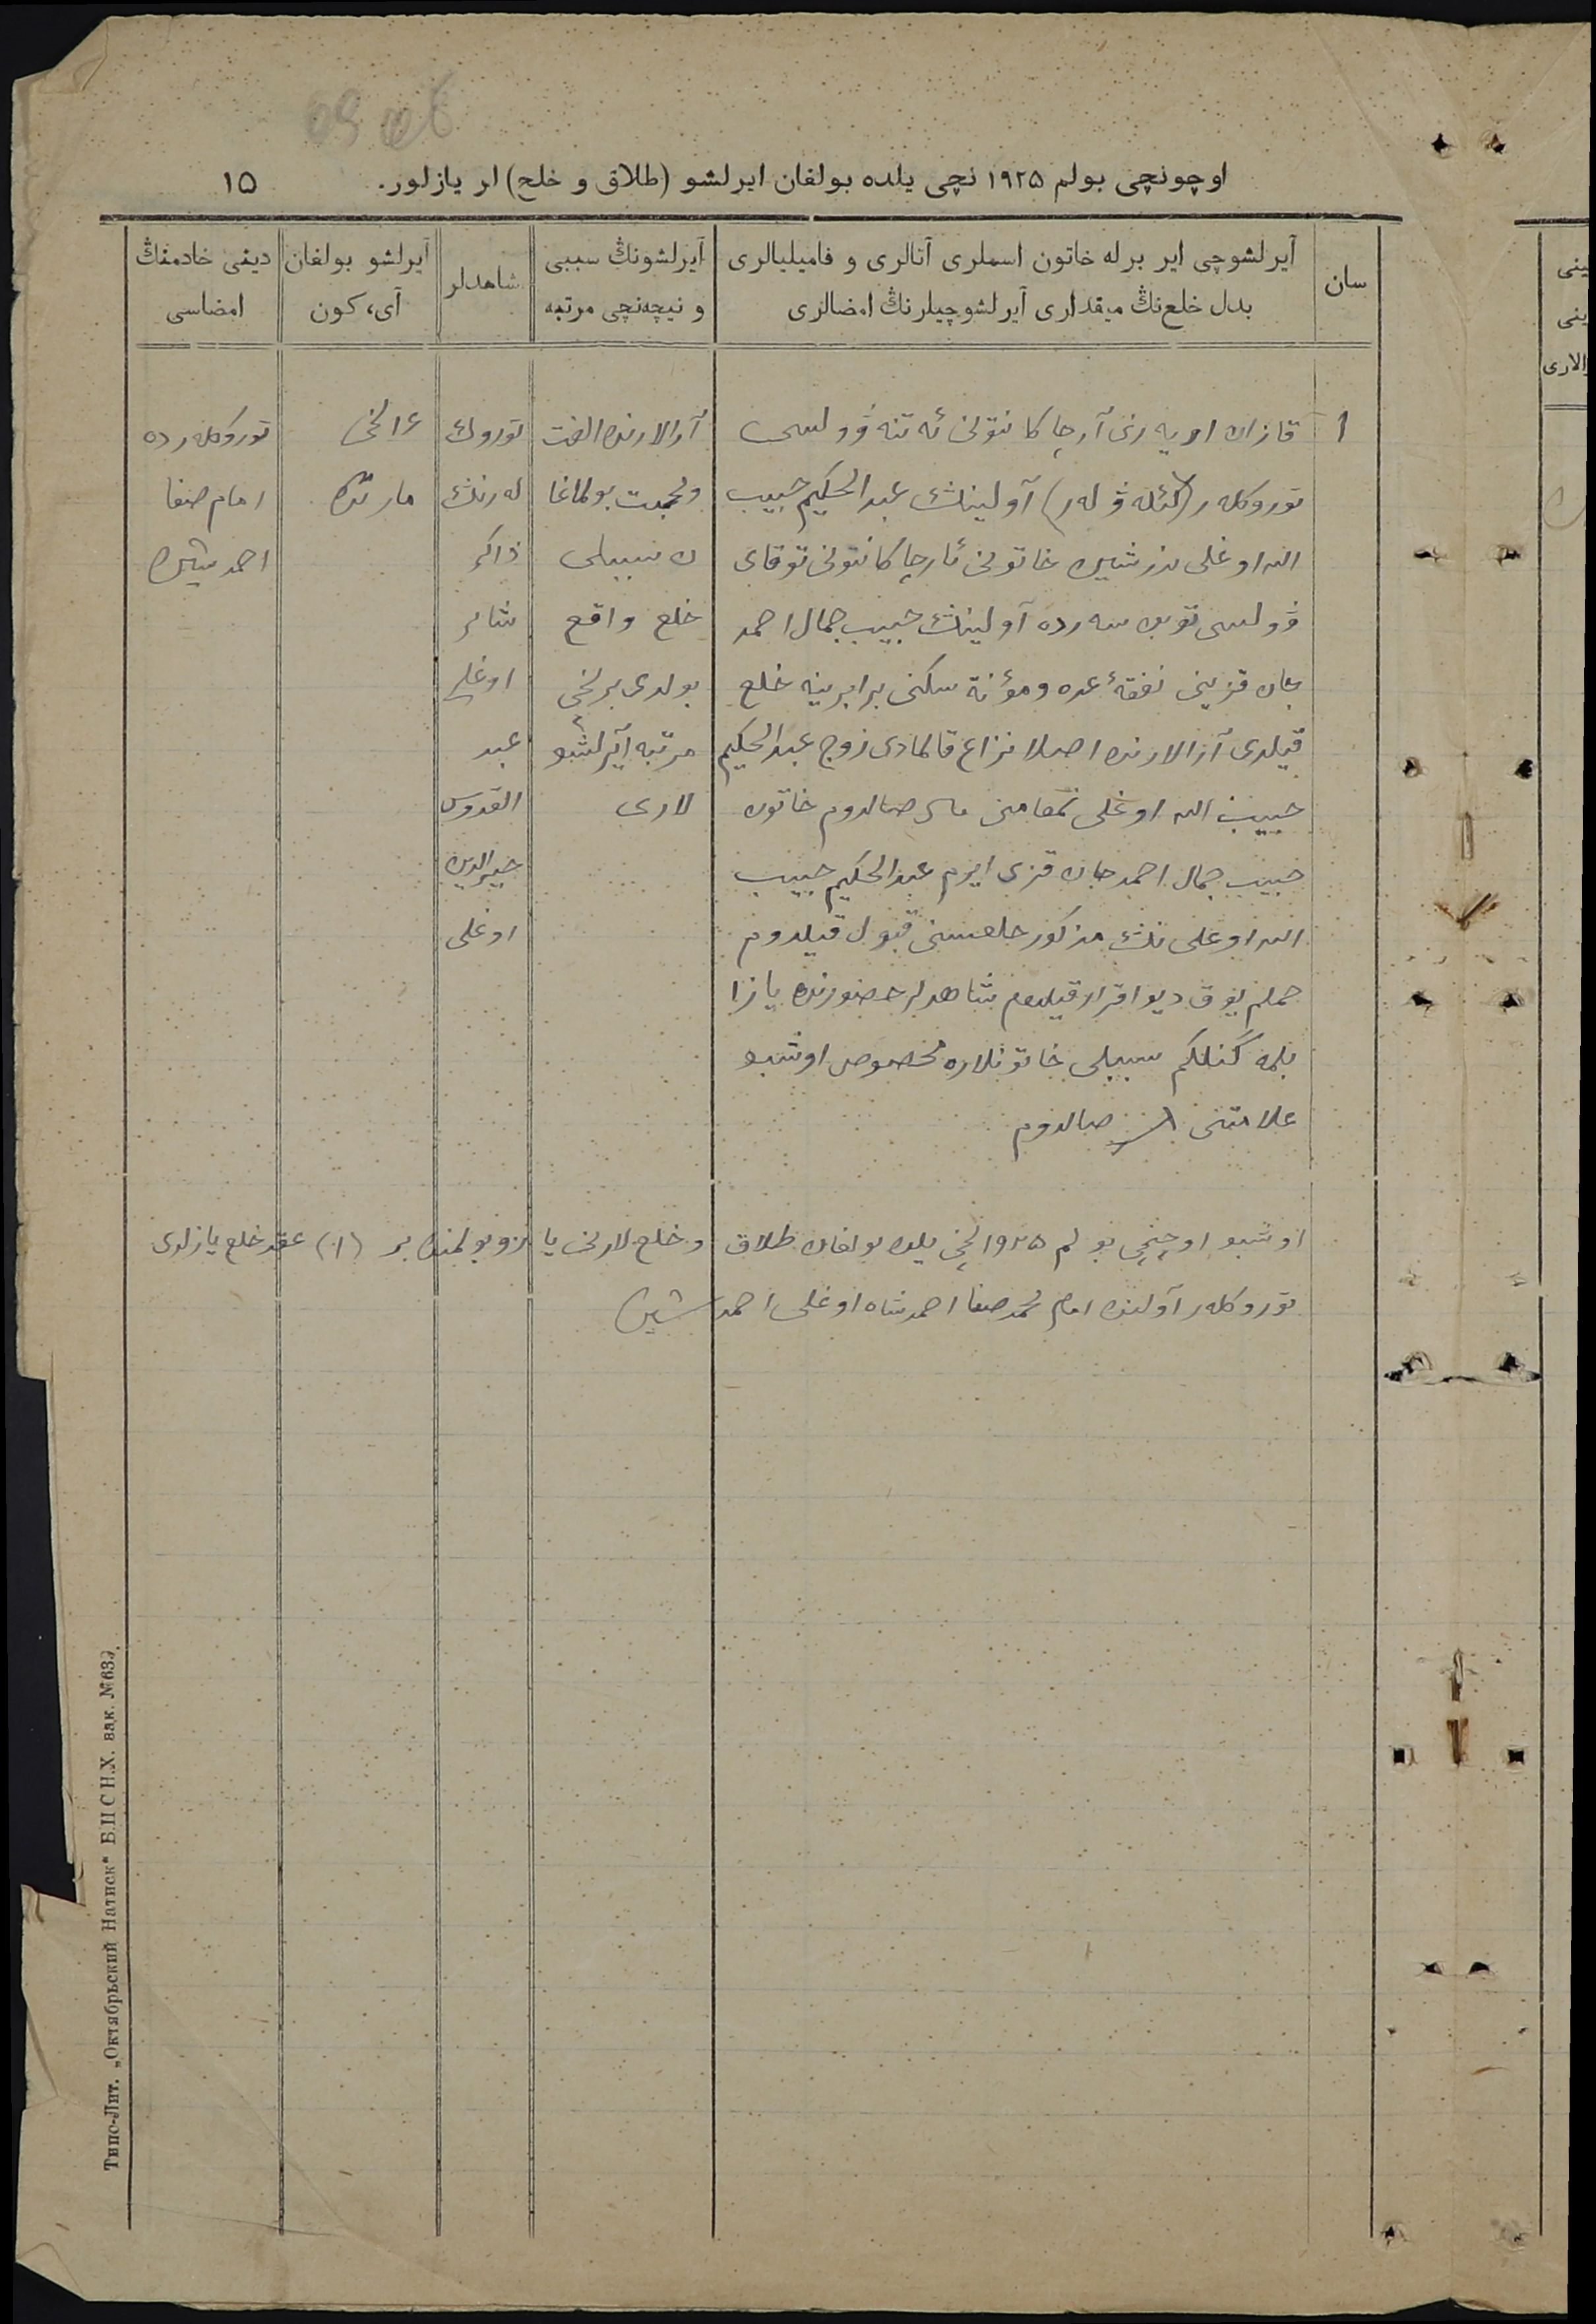 اوچونچی بولم ۱۹۲۵ نچی یلده بولغان ایرلشو (طلاق و خلع) لر یازلور.
۱۵
سان
آیرلشوچی ایر برله خاتون اسملری آتالری و فامیلیالری
بدل خلع‌نڭ میقداری آیرلشوچیلرنڭ امضالری
آیرلشونڭ سببی
و نیچه‌نچی مرتبه
شاهدلر
آیرلشو بولغان
آی، کون
دینی خادمنڭ
امضاسی
۱
قازان اویه‌زی آرچا کانتونی ئه‌تنه ۋولسی
توروکله‌ر آولینڭ عبدالحکیم حبیب
الله اوغلی خاتونی ئارچا کانتونی توقای
ۋولسی آولینڭ حبیب جمال احمد
جان قزینی نفقهٔ عده ومؤنة سکنی برابرینه خلع
قیلدی آرالارنده اصلا نزاع قالمادی زوج عبدالحکیم
حبیب الله اوغلی تمغامنی صالدوم خاتون
حبیب جمال احمد جان قزی ایرم عبدالحکیم حبیب
الله اوغلی نڭ مذکور خلعسنی قبول قیلدوم
حملم یوق دیو اقرار قیلدم شاهدلر حضورنده یازا
بلمه گنلگم سببلی خاتونلاره مخصوص اوشبو
علامتنی صالدوم
آرالارنده الفت
ومحبت بولماغا
ن سببلی
خلع واقع
بولدی برنچی
مرتبه آیرلشو
لاری
توروك
له‌رنڭ
ذاکر
شاکر
اوغلی
عبد
القدوس
خیرالدین
اوغلی
۱۶ نچی
مارتده
توروکله‌رده
امام صفا
احمدشین
اوشبو اوچنچی بولم ۱۹۲۵ نچی یلده بولغان طلاق و خلع‌لارنی یازو بولمنده بر (۱) عقد خلع یازلدی
توروکله‌ر آولنده امام محمدصفا احمدشاه اوغلی احمدشین
Типо-Лит. „Октябрьский Натиск“ Б.Ц С Н.Х. зак. №639